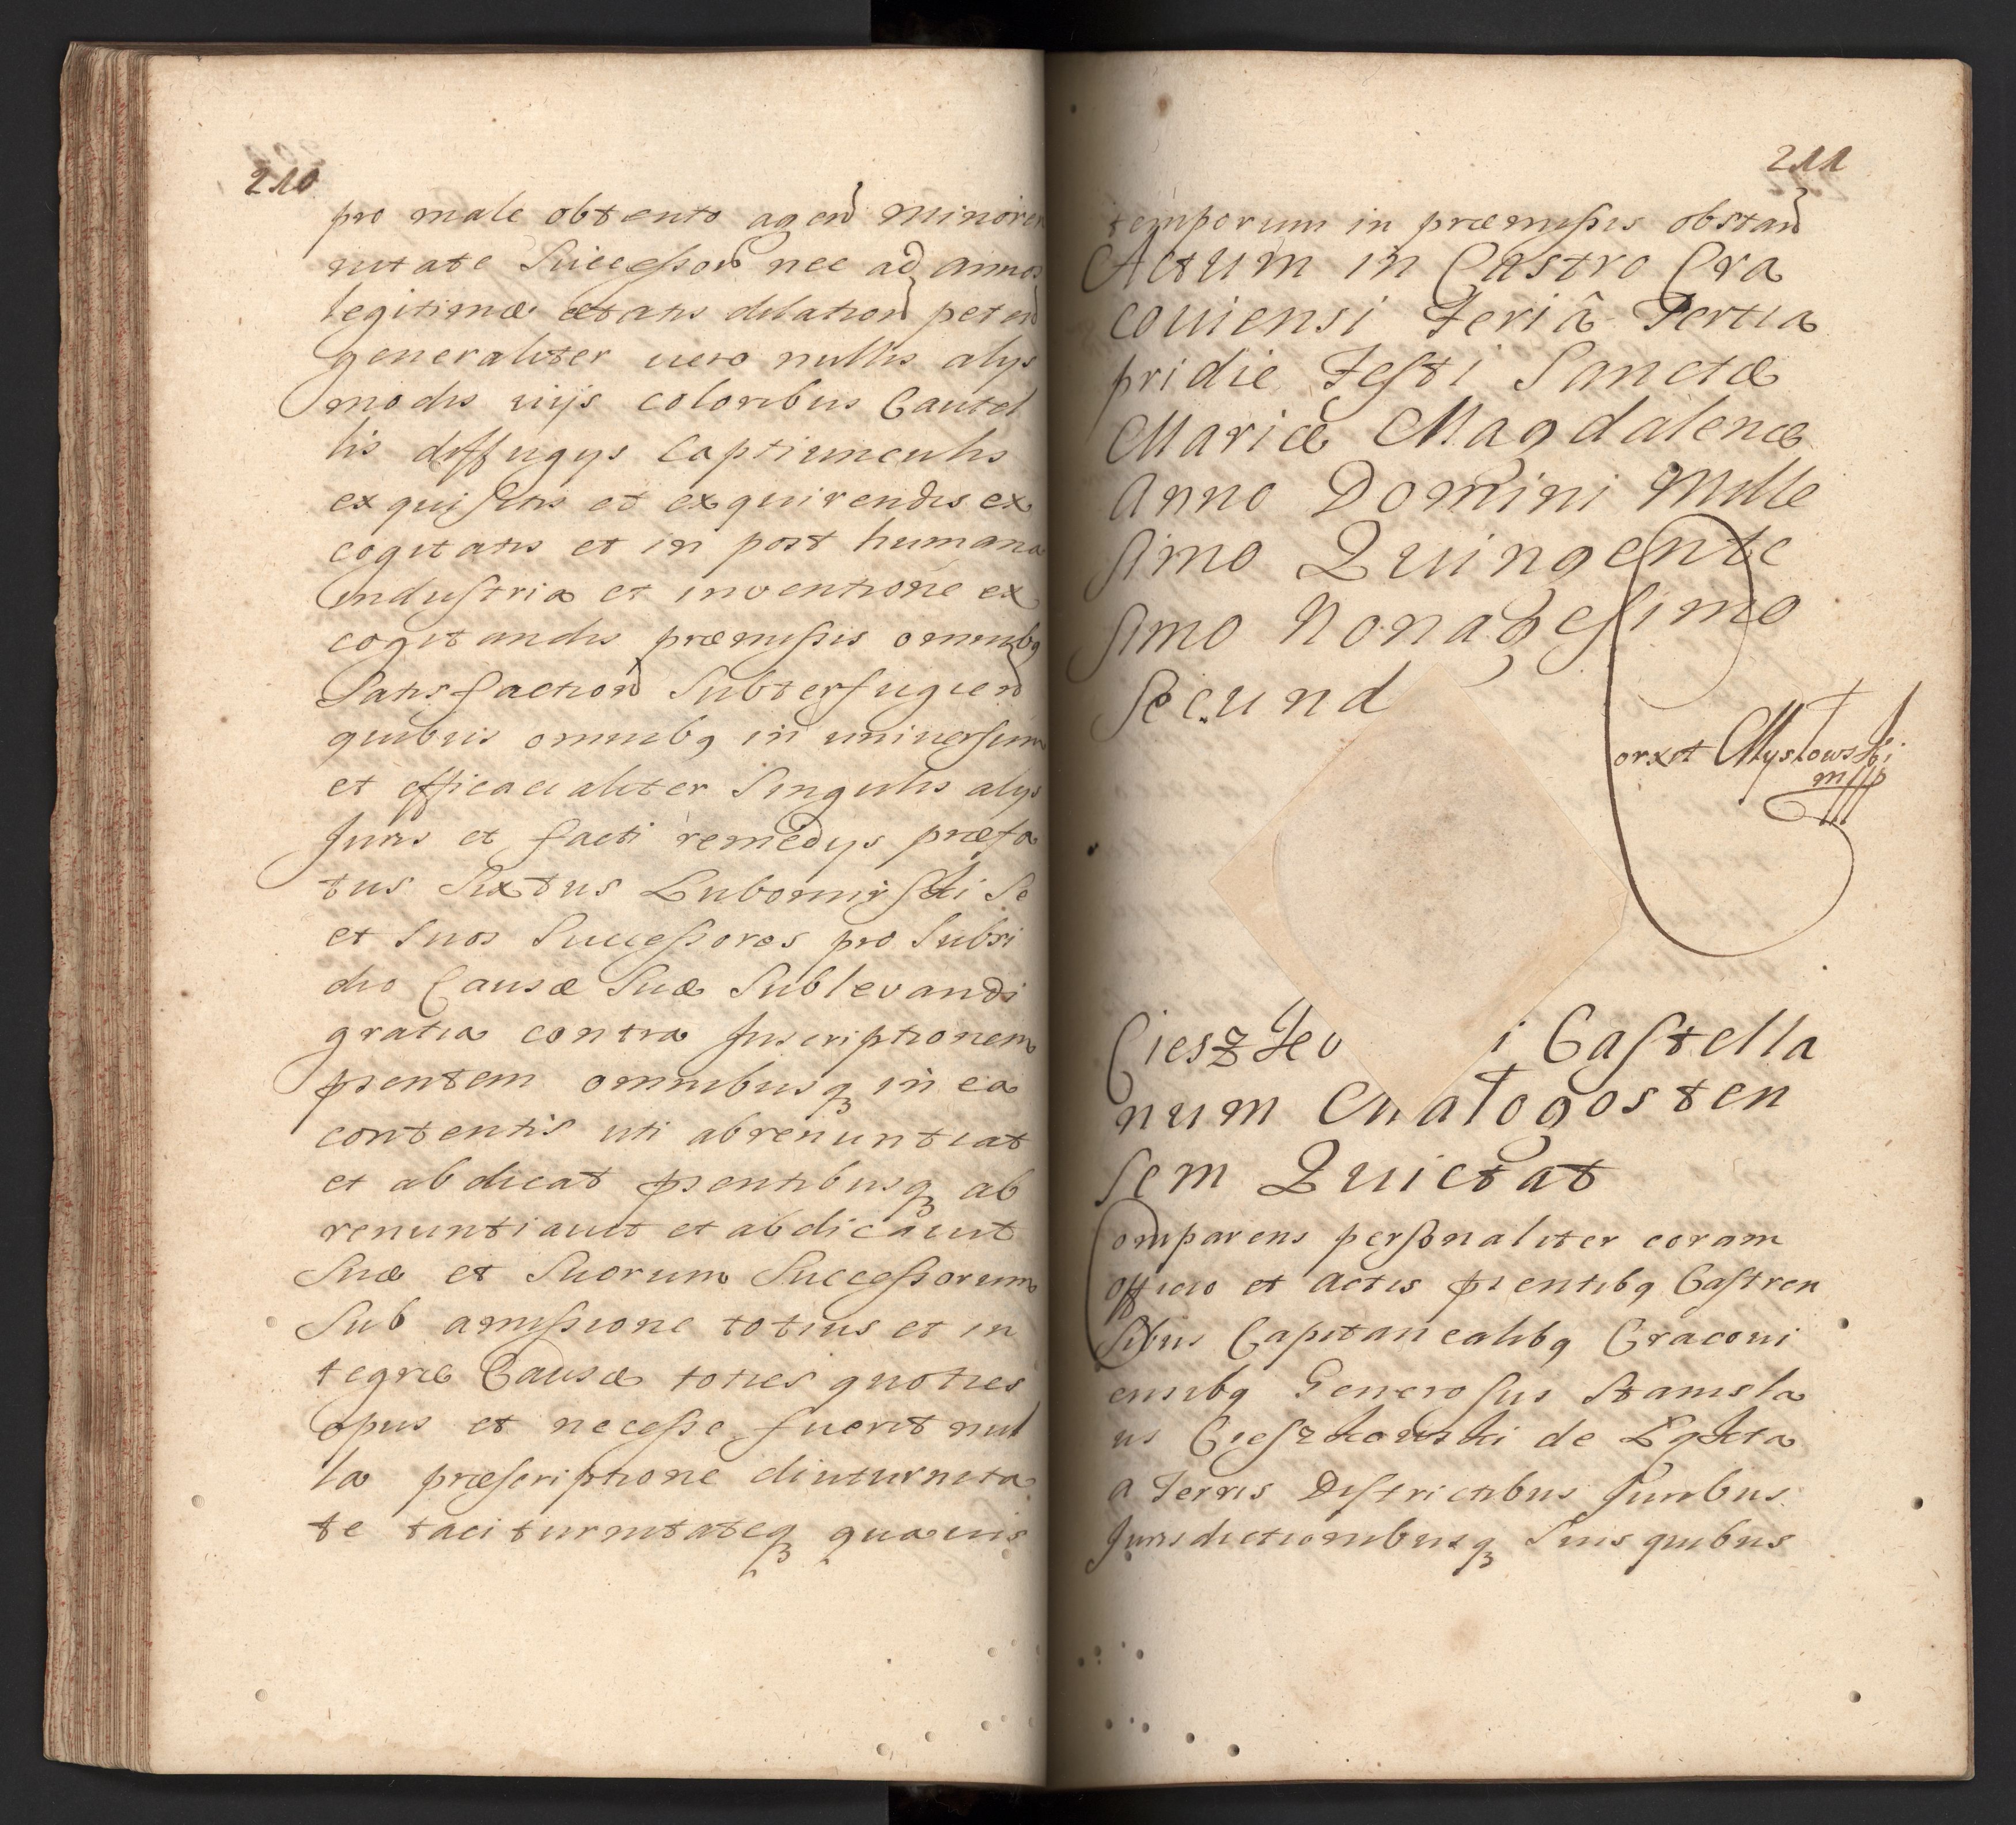 210
pro male obtento agend minoren
nitate Successor nec ad annos
legitimæ ætatis dilation petend
generaliter uero nullis alys
modis uijs coloribus Cautel
lis diffugys Captiunculis
exquisitis et exquirendis ex
cogitatis et in post humana
industria et inventione ex
cogitandis præmissis omnibq
Satisfaction Subterfugiend
quibus omnibq in universum
et efficacialiter Singulis alys
Juris et facti remedys præfa
tus Sixtus Lubomirski Se
et Suos Successores pro Subsi
dio Causæ Suæ Sublevandi
gratia contra Inscriptionem
psentem omnibusq in ea
contentis uti abrenuntiat
et abdicat psentibusq ab
renuntiauit et abdicauit
Suæ et Suorum Successorum
Sub amissione totius et in
tegræ Causæ toties quoties
opus et necesse fuerit nul
la præscriptione diuturnita
te taciturnitateq quauis
211
temporum in præmissis obstan
Actum in Castro Cra
couiensi Feriâ Tertia
pridie Festi Sanctæ
Mariæ Magdalenæ
Anno Domini Mille
simo Quingente
simo Nonagesimo
Secund
orxit Mysłowski
mpp
Cieszko i Castella
num Małogosten
sem Quietat
Comparens personaliter coram
officio et actis psentibq Castren
sibus Capitanealibq Cracoui
ensibq Generosus Stanisla
us Cieszkowski de Łąkta
a Terris Districtibus Juribus
Jurisdictionibusq Suis quibus